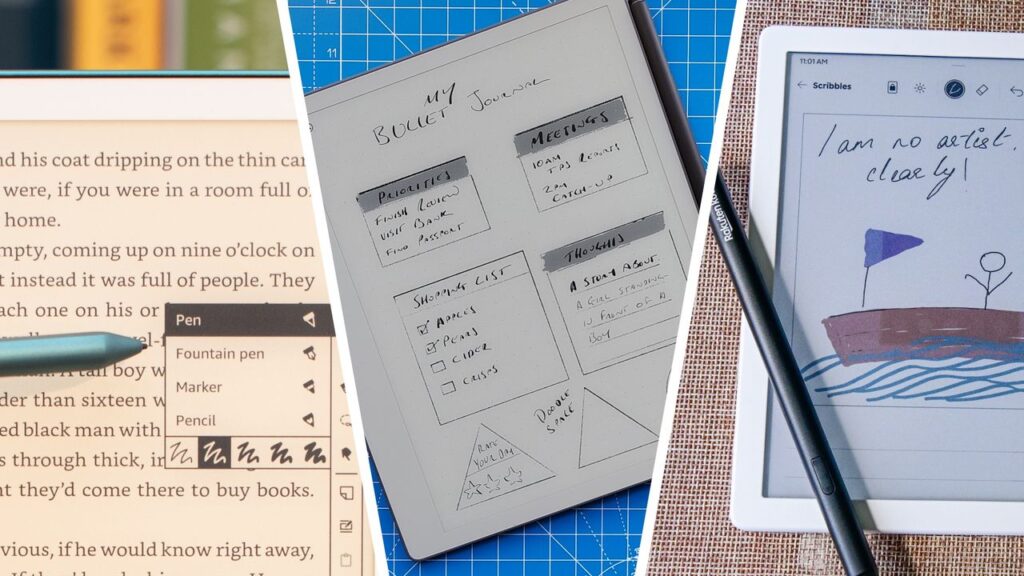 nd his coat dripping on the thin car
were, if you were in a room full o
home.
empty, coming up on nine o'clock on
t instead it was full of people. They
ach one on his or
Pen
Fountain pen
Marker
Pencil
tall boy w
der than sixteen w
ed black man with
s through thick, in
nt they'd come there to buy books.
vious, if he would know right away,
12
11
MY
BULLET JOURNAL
PRIORITIES
FINISH REVIEW
VISIT BANK
FIND PASSPORT
MEETINGS
10AM
TPS REPORTS
2PM
CATCH-UP
SHOPPING LIST
APPLES
PEARS
CIDER
CRISPS
THOUGHTS
A STORY ABOUT
A GIRL STANDING
IN FRONT OF A
BOY
DOODLE
SPACE
RATE
YOUR DAY
Rakuten
11:01 AM
Scribbles
I am no artist,
clearly!